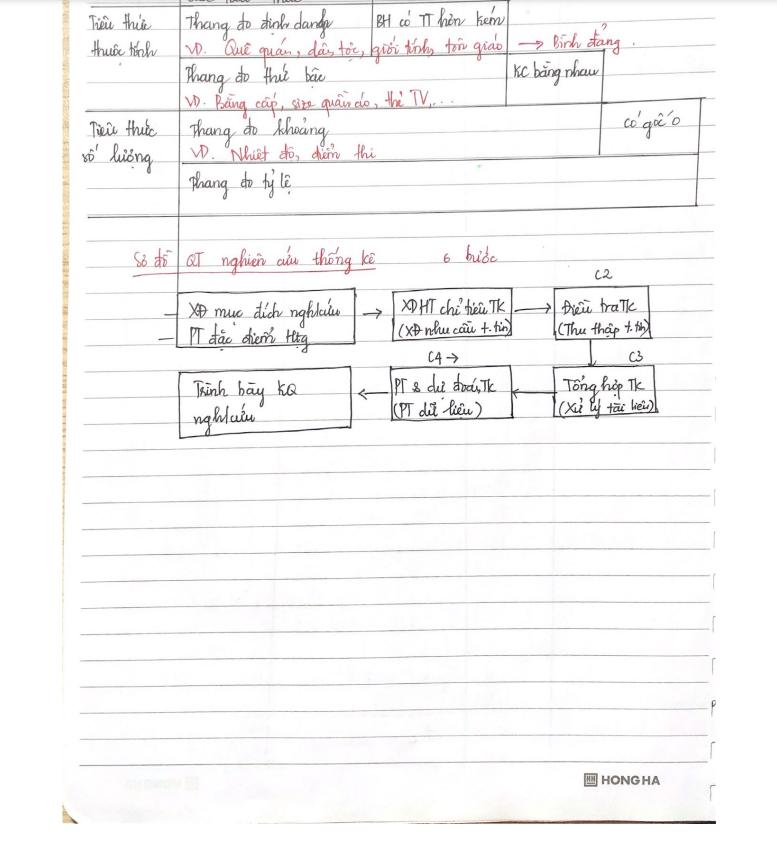 Tiêu thức
thuộc tính
Thang đo định danh
BH có TT hơn kém
VD. Quê quán, dân tộc, giới tính, tôn giáo → Bình đẳng.
Thang đo thứ bậc
KC bằng nhau
VD. Bằng cấp, size quần áo, thẻ TV,...
Tiêu thức
số lượng
Thang đo khoảng
có gốc 0
VD. Nhiệt độ, điểm thi
Thang đo tỷ lệ
Sơ đồ QT nghiên cứu thống kê 6 bước
C2
XĐ mục đích nghiên cứu
PT đặc điểm Htg
→
XĐ HT chỉ tiêu TK
(XĐ nhu cầu t.tin)
→
Điều tra TK
(Thu thập t.tin)
C4 →
C3
Trình bày KQ
nghiên cứu
←
PT & dự đoán TK
(PT dữ liệu)
←
Tổng hợp TK
(Xử lý tài liệu)
HONG HA